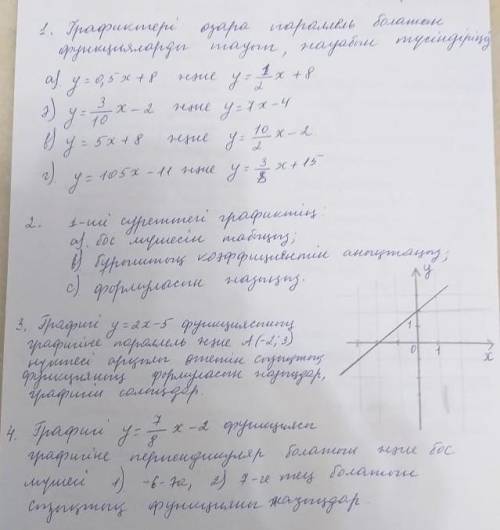 1. Графиктері өзара параллель болатын
функцияларды тауып, жауабын түсіндіріңіз
а) y = 0,5x + 8 және y = 1/2 x + 8
ә) y = 3/10 x - 2 және y = 7x - 4
в) y = 5x + 8 және y = 10/2 x - 2
г) y = 105x - 11 және y = 3/8 x + 15
2. 1-ші суреттегі графиктің:
а) бос мүшесін табыңыз;
в) бұрыштық коэффициентін анықтаңыз;
с) формуласын жазыңыз.
y
1
0 1 x
3. Графигі y = 2x - 5 функциясының
графигіне параллель және A(-2; 3)
нүктесі арқылы өтетін сызықтық
функцияның формуласын жазыңдар,
графигін салыңдар.
4. Графигі y = 7/8 x - 2 функциясы
графигіне перпендикуляр болатын және бос
мүшесі 1) -6-ға, 2) 7-ге тең болатын
сызықтық функцияны жазыңдар.